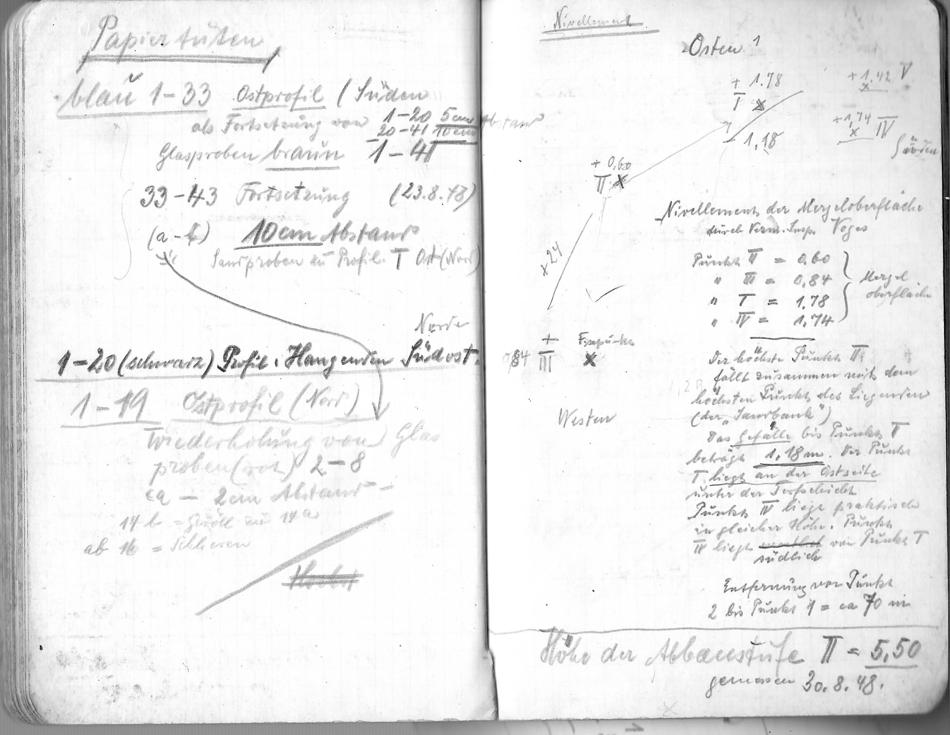 Papiertüten
blau 1-33 Ostprofil (Süden
als Fortsetzung von 1-20 5cm
20-41 10cm Abstand
Glasproben braun 1-41
33-43 Fortsetzung (23.8.48)
10cm Abstand
Sandproben zu Profil I Ost (Nord)
Norden
1-20 (schwarz) Profil i. Hangenden Südost
1-19 Ostprofil (Nord)
Wiederholung von Glas
proben (rot) 2-8
ca - 2cm Abstand -
14 b = Geröll zu 14a
ab 16 = Schlieren
Nivellement
Osten 1
+ 1.78
I x
- 1,18
+ 1.42 V
x
+ 1,74 IV
x
Süden
+ 0,60
II x
x 24
+ Fixpunkt
0,84 III x
Westen
Nivellement der Mergeloberfläche
durch Verm. Insp. Voges
Punkt II = 0,60
" III = 0,84
" I = 1.78
" IV = 1,74
Mergel
oberfläche
Der höchste Punkt II
fällt zusammen mit dem
höchsten Punkt des Liegenden
(der
Das Gefälle bis Punkt I
beträgt 1,18m. Der Punkt
I liegt an der Ostseite
unter der Torfschicht
Punkt IV liegt praktisch
in gleicher Höhe. Punkt
IV liegt von Punkt I
südlich
Entfernung von Punkt
2 bis Punkt 1 = ca 70 m
Höhe der Abbaustufe II = 5,50
gemessen 30.8.48.